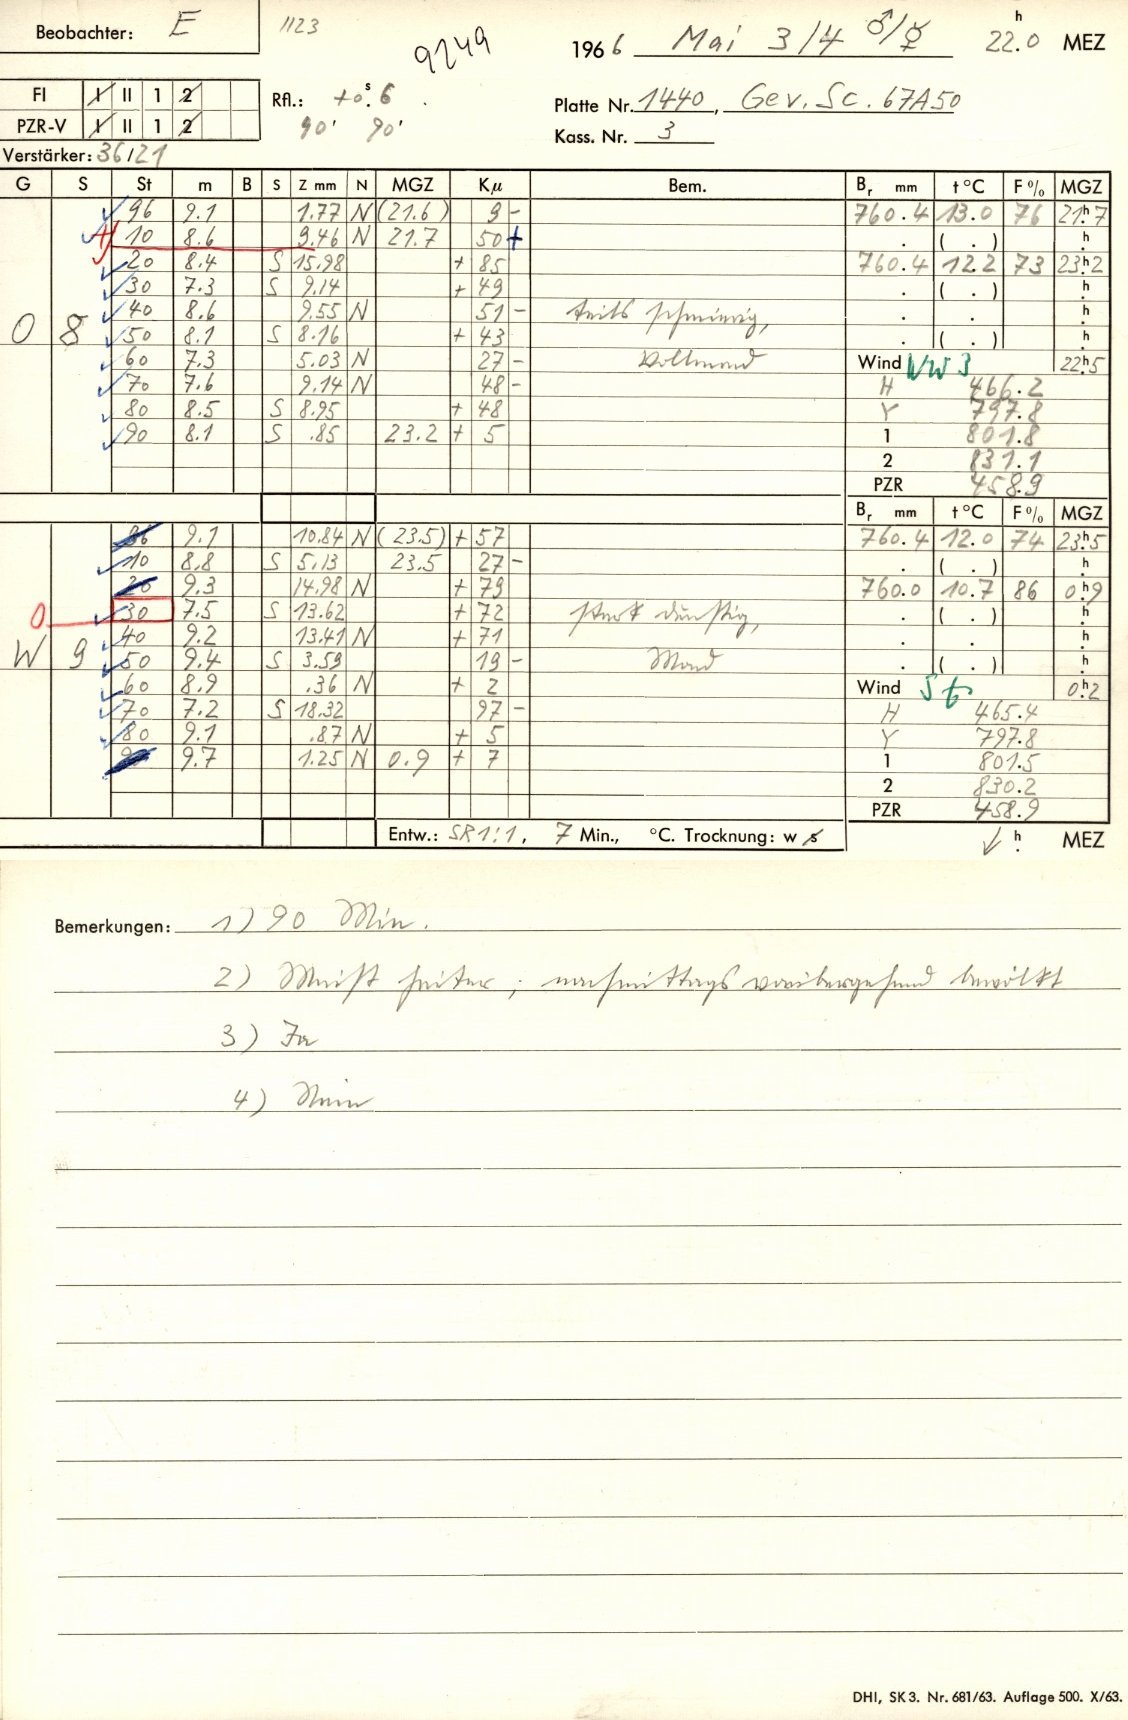 Beobachter: E 1123 9249 1966 Mai 3/4 ♂/☿ 22.0 h MEZ
FI I II 1 2
PZR-V I II 1 2
Rfl.: +0.6 s
90' 90'
Platte Nr. 1440, Gev. Sc. 67A50
Kass. Nr. 3
Verstärker: 36/21
G S St m B S Z mm N MGZ Kµ Bem. Br mm t °C F % MGZ
96 9.1 1.77 N (21.6) 9 - 760.4 13.0 76 21h7
10 8.6 9.46 N 21.7 50 + . ( . ) h
20 8.4 S 15.98 + 85 760.4 12.2 73 23h2
30 7.3 S 9.14 + 49 . ( . ) h
40 8.6 9.55 N 51 - teils schmierig, . . h
O 8 50 8.1 S 8.16 + 43 . ( . ) h
60 7.3 5.03 N 27 - Vollmond Wind NW 3 22h5
70 7.6 9.14 N 48 - H 466.2
80 8.5 S 8.95 + 48 Y 797.8
90 8.1 S .85 23.2 + 5 1 801.8
2 831.1
PZR 458.9
Br mm t °C F % MGZ
96 9.1 10.84 N (23.5) + 57 760.4 12.0 74 23h5
10 8.8 S 5.13 23.5 27 - . ( . ) h
20 9.3 14.98 N + 79 760.0 10.7 86 0h9
0 30 7.5 S 13.62 + 72 stark dunstig, . ( . ) h
40 9.2 13.41 N + 71 . . h
W 9 50 9.4 S 3.59 19 - Mond . ( . ) h
60 8.9 .36 N + 2 Wind St 0h2
70 7.2 S 18.32 97 - H 465.4
80 9.1 .87 N + 5 Y 797.8
9.7 1.25 N 0.9 + 7 1 801.5
2 830.2
PZR 458.9
Entw.: SR 1:1, 7 Min., °C. Trocknung: w s h MEZ
Bemerkungen: 1) 90 Min.
2) Meist heiter; nachmittags vorübergehend bewölkt
3) Ja
4) Nein
DHI, SK 3. Nr. 681/63. Auflage 500. X/63.